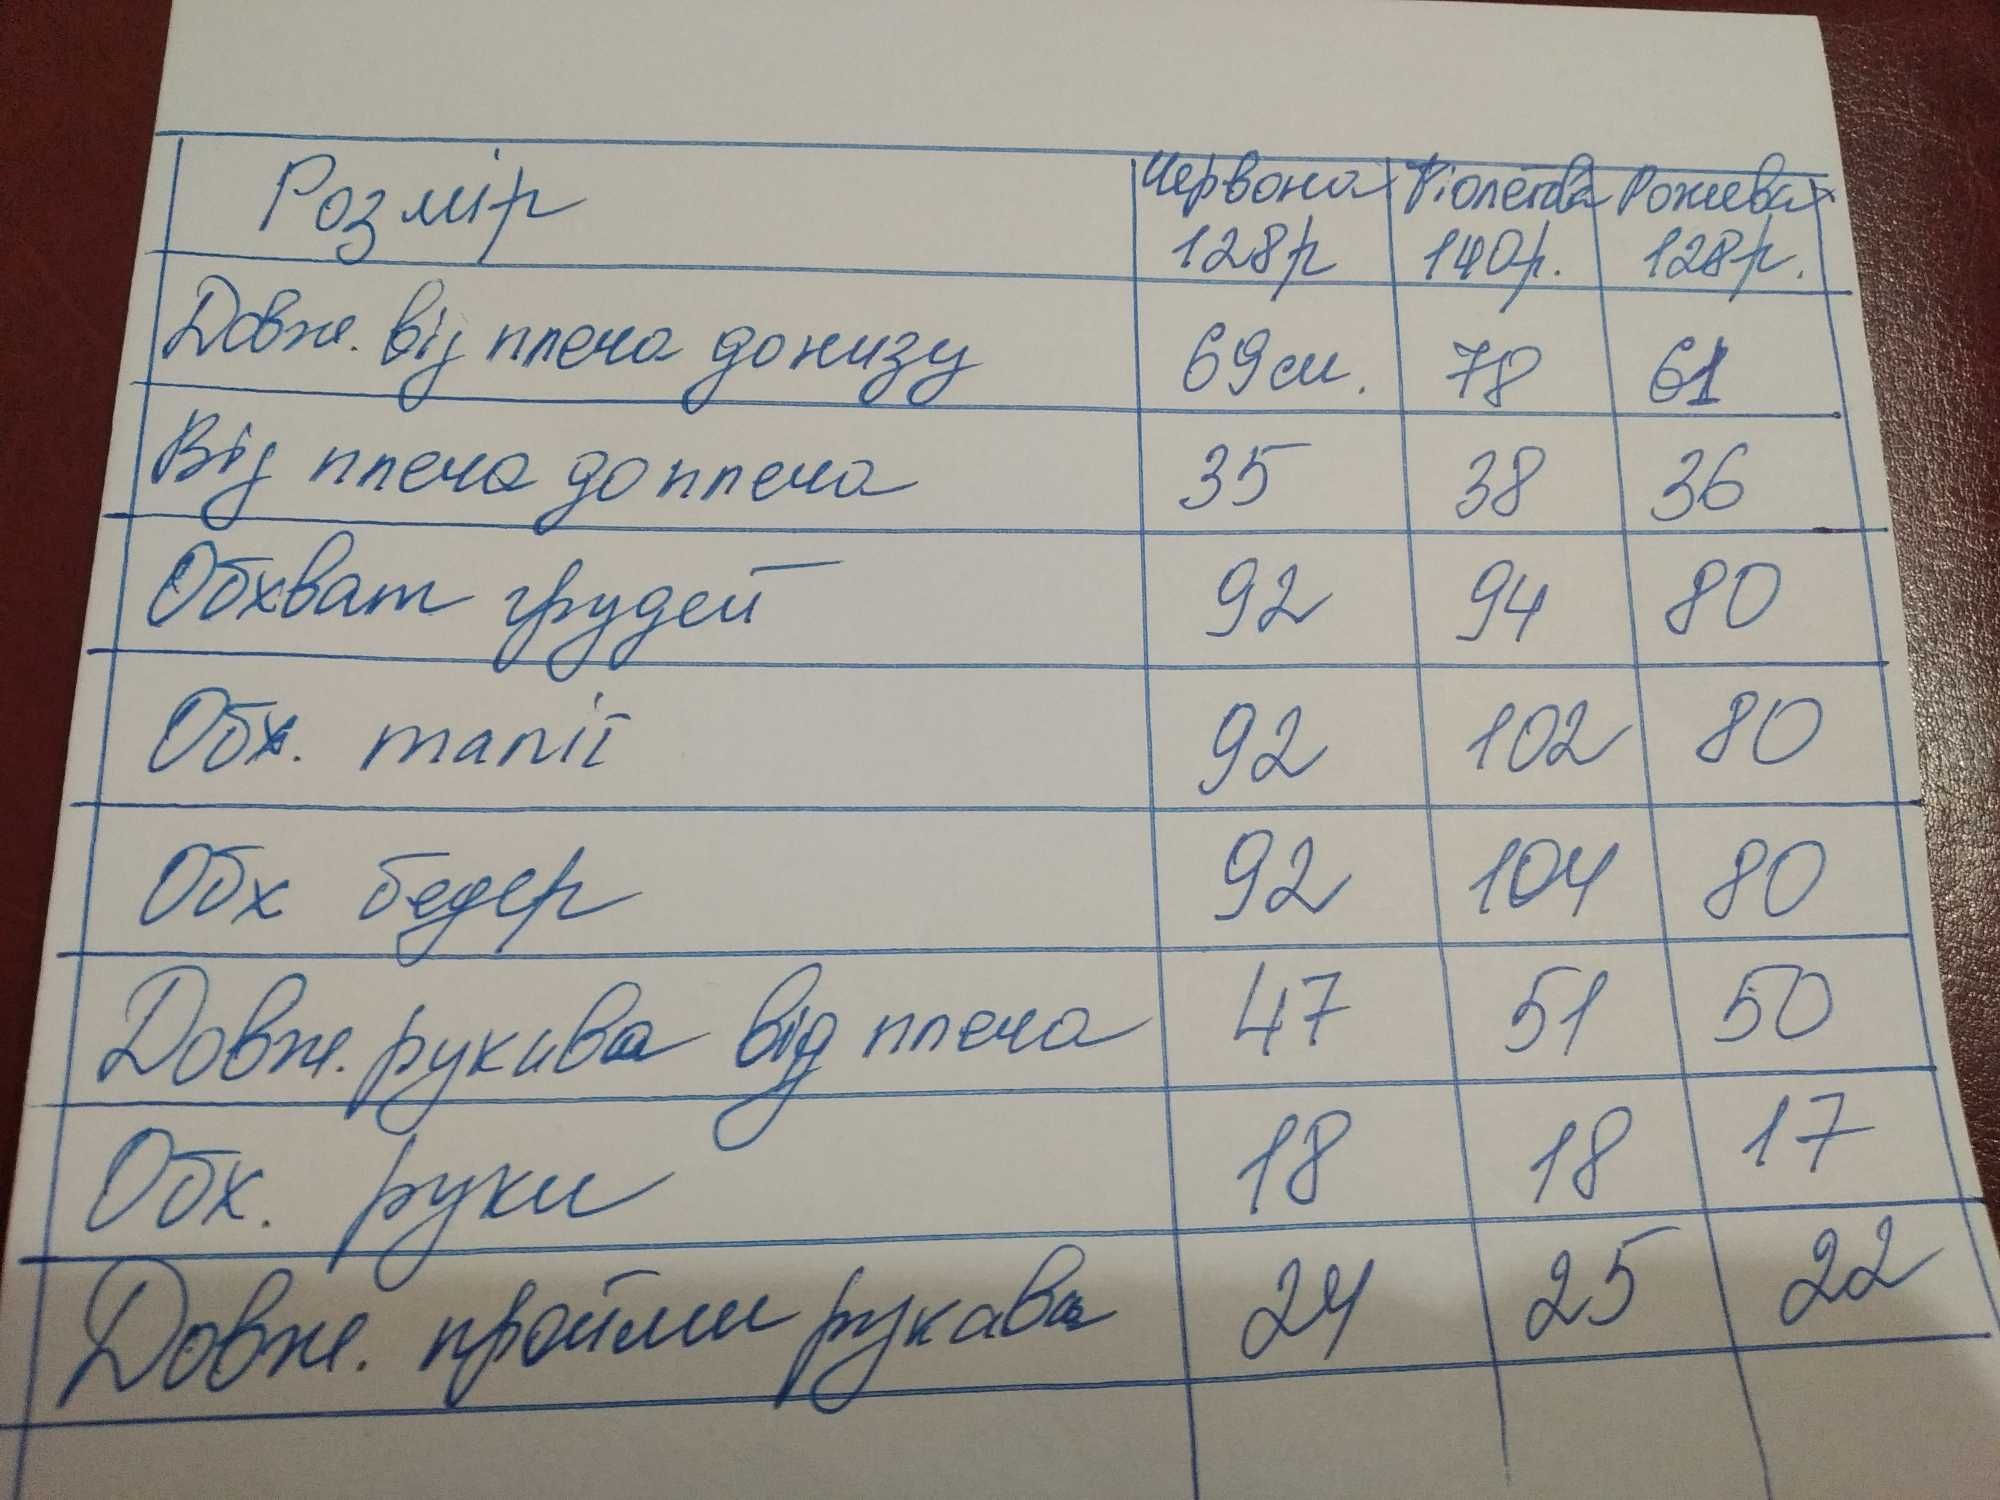 Розмір Червона Фіолетова Рожева
128р 140р. 128р.
Довж. від плеча донизу 69см. 78 61
Від плеча до плеча 35 38 36
Обхват грудей 92 94 80
Обх. талії 92 102 80
Обх бедер 92 104 80
Довж. рукава від плеча 47 51 50
Обх. руки 18 18 17
Довж. пройми рукава 24 25 22